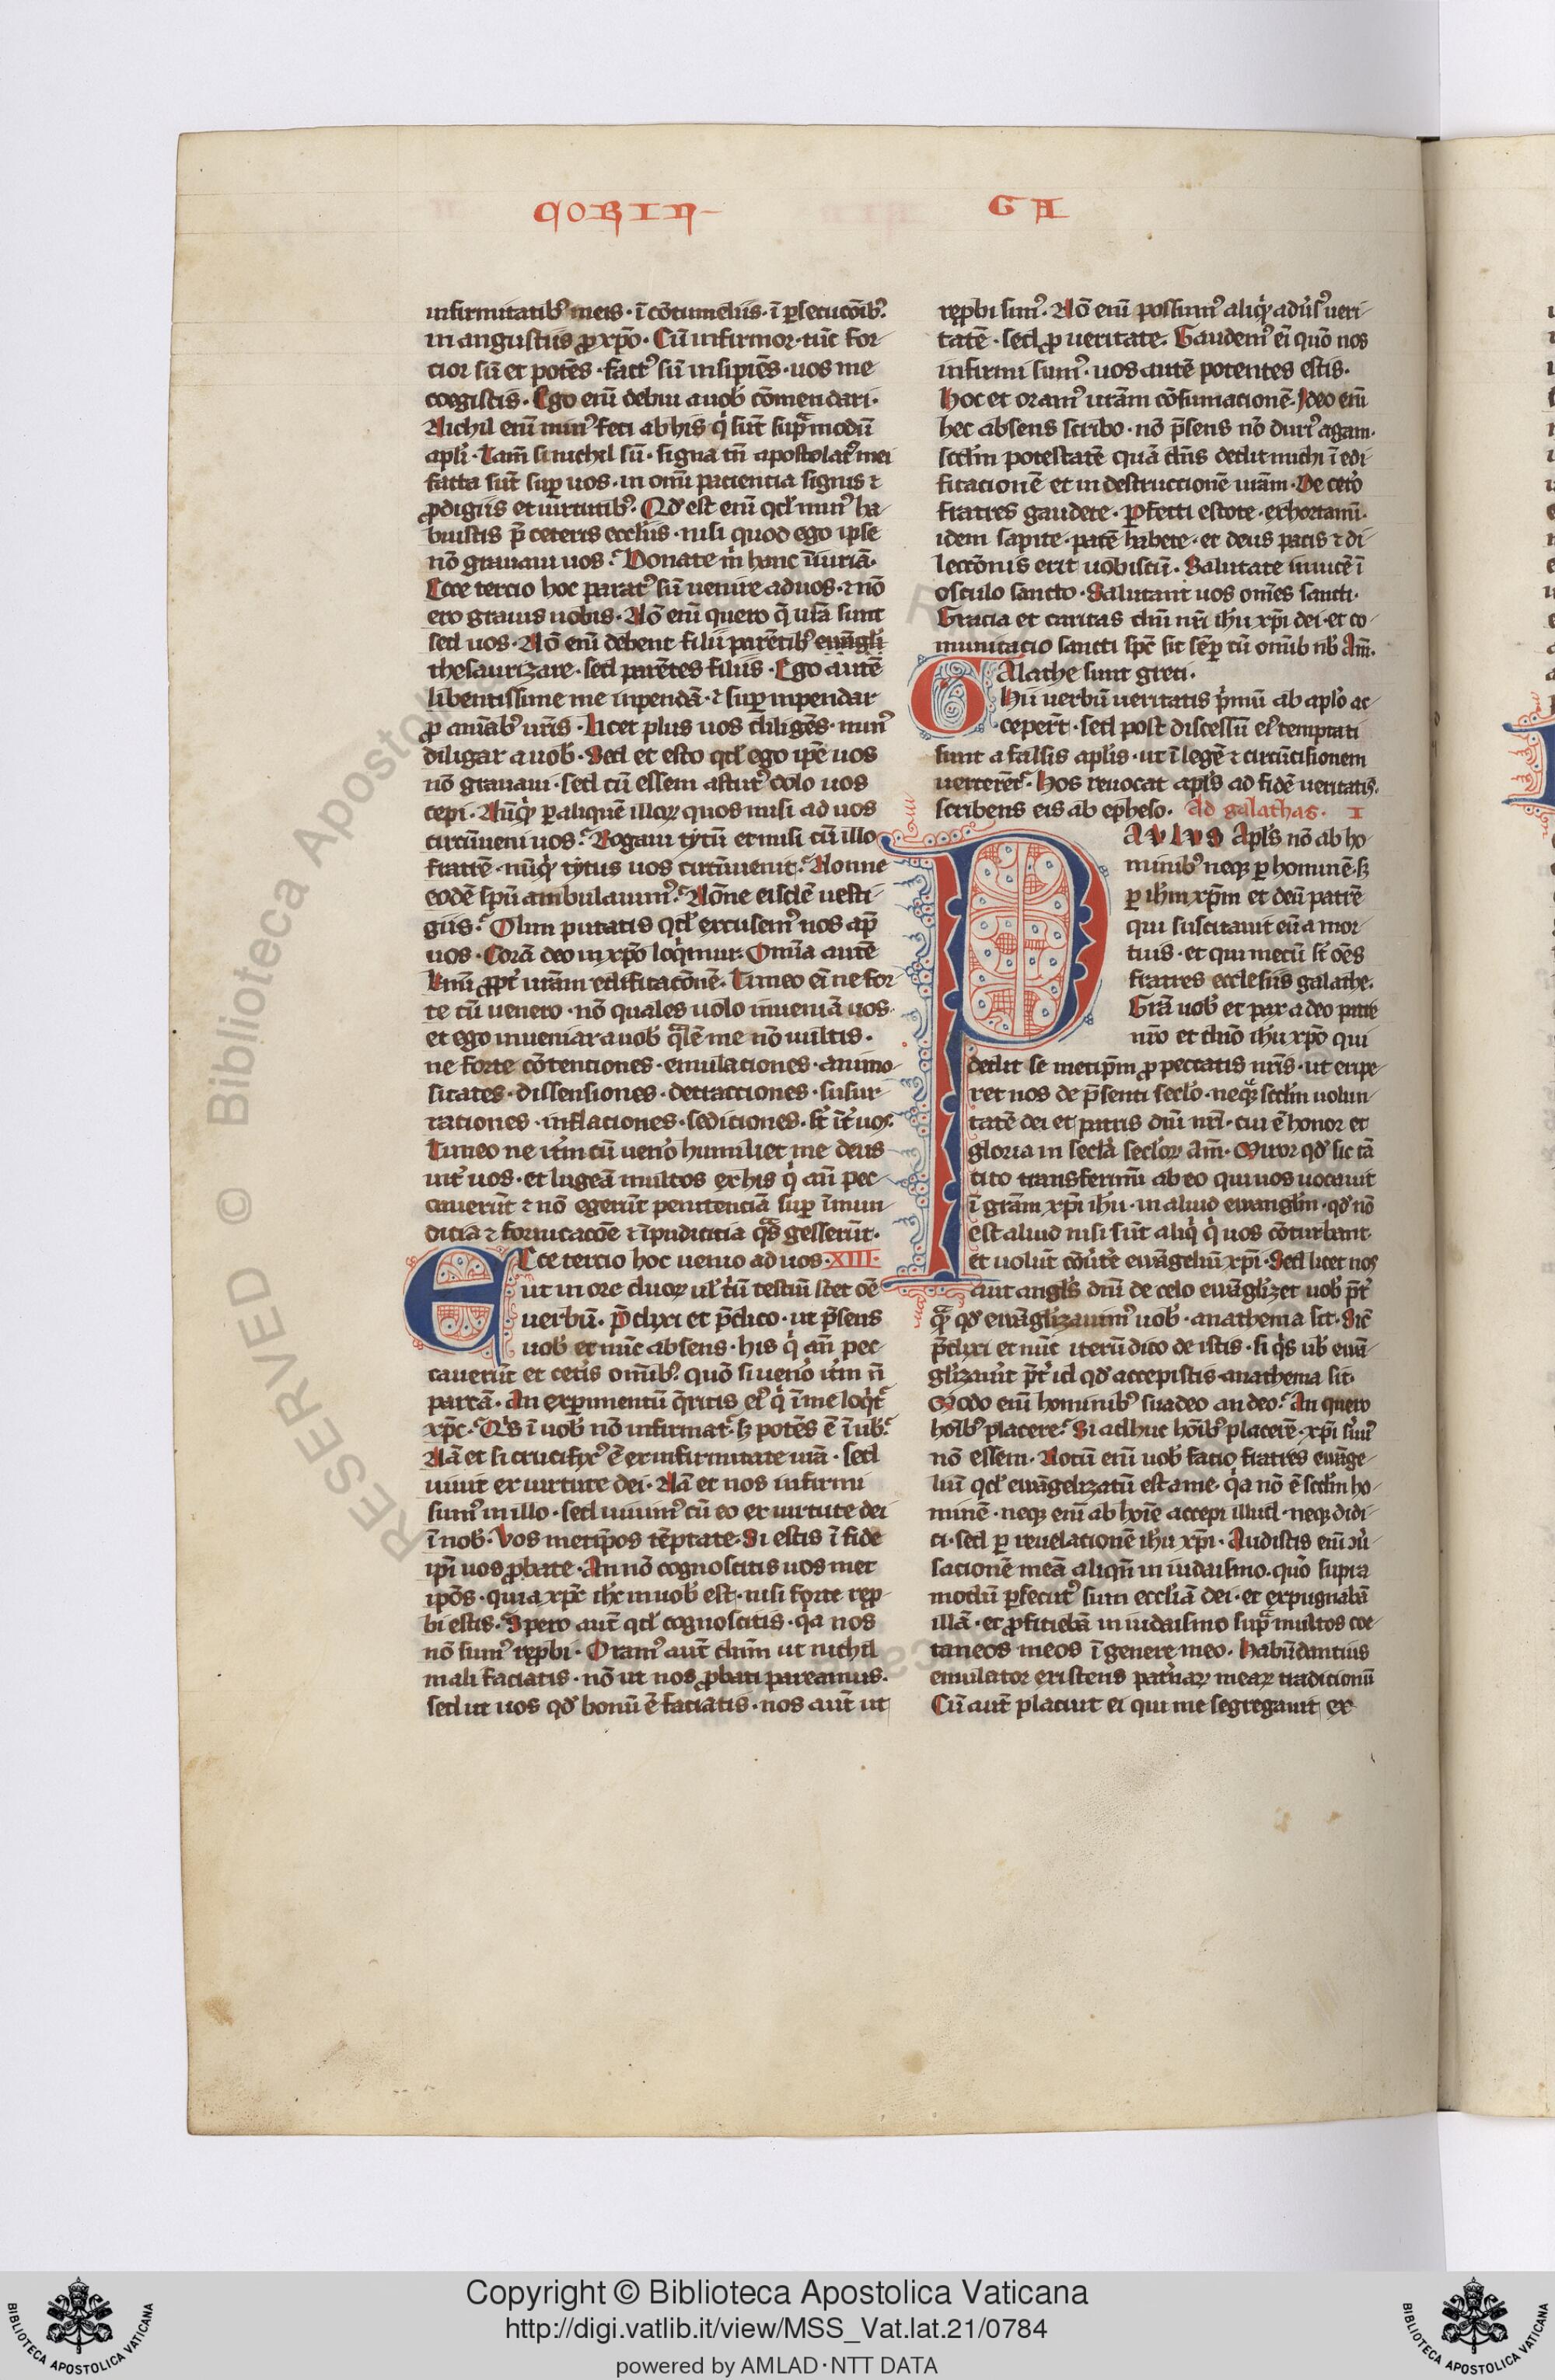 CORIN
GA
infirmitatibꝰ meis · ī cōtumeliis · ī ꝑsecucōibꝰ.
in angustiis ꝓ xp̄o · Cū infirmor · tūc for-
cior sū et potēs · factꝰ sū insipiēs · uos me
coegistis · Ego enī debui a uob̓ cōmendari ·
Nichil enī minꝰ feci ab his q̓ sūt sup̄ modū
apl̓i · Tam̄ si nichil sū · signa tn̄ apostolatꝰ mei
facta sūt sup uos · in om̄i paciencia signis ⁊
ꝓdigiis et uirtutibꝰ. Qd̓ est enī qd̓ minꝰ ha-
buistis p̄ ceteris eccl̓iis · nisi quod ego ipse
nō grauaui uos. Donate m̓ hanc īiuriā ·
Ecce tercio hoc paratꝰ sū uenire ad uos · ⁊ nō
ero grauis uobis · Nō enī quero q̄ ur̄a sunt
sed uos · Nō enī debent filii parētibꝰ euāgl̓i
thesaurizare · sed parētes filiis · Ego autē
libentissime me inpendā · ⁊ sup inpendar
ꝓ aīab̓ ur̄is · licet plus uos diligēs · minꝰ
diligar a uob̓ · Sed et esto qd̓ ego ip̄e uos
nō grauaui · sed cū essem astutꝰ dolo uos
cepi · Nūq̓ ꝑ aliquē illoꝝ quos misi ad uos
circūueni uos. Rogaui tytū et misi cū illo
fratrē · nūq̓ tytus uos circūuenit. Nonne
eodē sp̄u ambulauimꝰ. Nōne eisdē uesti-
giis. Olim putatis qd̓ excusemꝰ nos ap̄
uos · Corā deo in xp̄o loq̓mur. Omīa autē
kmī ꝓpt̓ ur̄am edificacōnē · Timeo eī ne for-
te cū uenero · nō quales uolo inueniā uos ·
et ego inueniar a uob̓ q̄lē me nō uultis ·
ne forte cōtenciones · emulaciones · animo-
sitates · dissensiones · detracciones · susur-
rationes · inflaciones · sediciones · st̓ īt̓ uos ·
Timeo ne it̓m cū uen̓o humiliet me deus
int̓ uos · et lugeā multos ex his q̓ an̄ pec-
cauerūt ⁊ nō egerūt penitenciā sup īmun-
dicia ⁊ fornicacōe ⁊ īpudicitia q̄s gesserūt ·
Ecce tercio hoc uenio ad uos · XIII ·
ut in ore duoꝝ ul̓ t̓ū testiū stet oē
uerbū · p̄dixi et p̄dico · ut p̄sens
uob̓ et nūc absens · his q̓ an̄ pec-
cauerūt et cet̓is om̄ibꝰ. quō si uen̓o it̓m n̄
parcā · An exꝑimentū q̄ritis eiꝰ q̓ ī me loq̓t̓
xp̄c. Qī ī uob̓ nō infirmat̓ · sꝫ potēs ē ī ub̓.
Nā et si crucifixꝰ ē ex infirmitate ur̄a · sed
uiuit ex uirtute dei · Nā et nos infirmi
sumꝰ in illo · sed uiuimꝰ cū eo ex uirtute dei
ī nob̓. Vos metip̄os tēptate · Si estis ī fide
ip̄i uos ꝓbate · An nō cognoscitis uos met
ip̄os · quia xp̄c ih̄c in uob̓ est · nisi forte reꝓ-
bi estis · Spero aut̄ qd̓ cognoscitis · q̓a nos
nō sumꝰ reꝓbi · Oramꝰ aut̄ dn̄m ut nichil
mali faciatis · nō ut nos ꝓbati pareamus ·
sed ut uos qd̓ bonū ē faciatis · nos aut̄ ut
reꝓbi simꝰ · Nō enī possumꝰ aliq̓ adūsꝰ ueri-
tatē · sed ꝓ ueritate · Gaudemꝰ eī quō nos
infirmi sumꝰ · uos autē potentes estis ·
Hoc et oramꝰ ur̄am cōsumacionē · Ideo enī
hec absens scribo · nō p̄sens nō duriꝰ agam ·
scd̓m potestatē quā dn̄s dedit michi ī edi-
ficacionē et in destruccionē ur̄am · De cet̓o
fratres gaudete · ꝑfecti estote · exhortamī ·
idem sapite · pacē habete · et deus pacis ⁊ di-
lectōnis erit uobiscū · Salutate inuicē ī
osculo sancto · Salutant uos om̄es sancti ·
Gracia et caritas dn̄i nr̄i ih̄u xp̄i dei · et co-
municacio sancti sp̄c sit sēꝑ cū omīb nb̓ Am̄ ·
GAlathe sunt greci ·
Hii uerbū ueritatis p̓mū ab apl̓o ac-
ceper̄t · sed post discessū eiꝰ temptati
sunt a falsis apl̓is · ut ī legē ⁊ circūcisionem
uerterēt̓ · Hos reuocat apl̓s ad fidē ueritatis ·
scribens eis ab epheso · Ad galathas · I
PAVLVS Apl̓s nō ab ho-
minibꝰ neqꝫ ꝑ hominē · sꝫ
ꝑ ih̄m xp̄m et deū patrē
qui suscitauit eū a mor-
tuis · et qui mecū st̓ oēs
fratres ecclesiis galathe ·
Gr̄a uob̓ et pax a deo patre
nr̄o et dn̄o ih̄u xp̄o qui
dedit se metip̄m ꝓ peccatis nr̄is · ut eripe-
ret nos de p̄senti sec̓lo · neqꝫ scd̓m uolun-
tatē dei et patris dn̄i nr̄i · cui ē honor et
gloria in secl̓a secl̓oꝝ am̄ · Miror qd̓ sic tā
cito transferimī ab eo qui uos uocauit
ī gr̄am xp̄i ih̄u · in aliud euangl̓m · qd̓ nō
est aliud nisi sūt aliq̓ q̓ uos cōturbant ·
et uolūt cōuͭt̓e euāgeliū xp̄i · Sed licet nos
aut angl̓s dn̄i de celo euāgl̓izet uob̓ p̄t̓
q̄ qd̓ euāgl̓izauimꝰ uob̓ · anathema sit · Sic̄
p̄dixi et nūc iterū dico de istis · si q̓s ub̓ euā-
gl̓izau̓it p̄t̓ id qd̓ accepistis · anathema sit ·
Modo enī hominibꝰ suadeo an deo. An quero
hōibꝰ placere. Si adhuc hōibꝰ placerē · xp̄i s̓uꝰ
nō essem · Notū enī uob̓ facio fratres euāge-
liū qd̓ euāgelizatū est a me · q̓a nō ē scd̓m ho-
minē · neqꝫ enī ab hoīe accepi illud · neqꝫ didi-
ci · sed ꝑ reuelacionē ih̄u xp̄i · Audistis enī ↄu̓-
sacionē meā aliqn̄ in iudaismo · quō supra
modū ꝑsecutꝰ sum eccl̓iā dei · et expugnabā
illā · et ꝓficiebā in iudaismo sup̄ multos coe-
taneos meos ī genere meo · Habūdantius
emulator existens pat̓naꝝ meaꝝ tradicionū
Cū aut̄ placuit ei qui me segregauit ex
RESERVED © Biblioteca Aposto
Copyright © Biblioteca Apostolica Vaticana
http://digi.vatlib.it/view/MSS_Vat.lat.21/0784
powered by AMLAD·NTT DATA
BIBLIOTECA APOSTOLICA VATICANA
BIBLIOTECA APOSTOLICA VATICANA